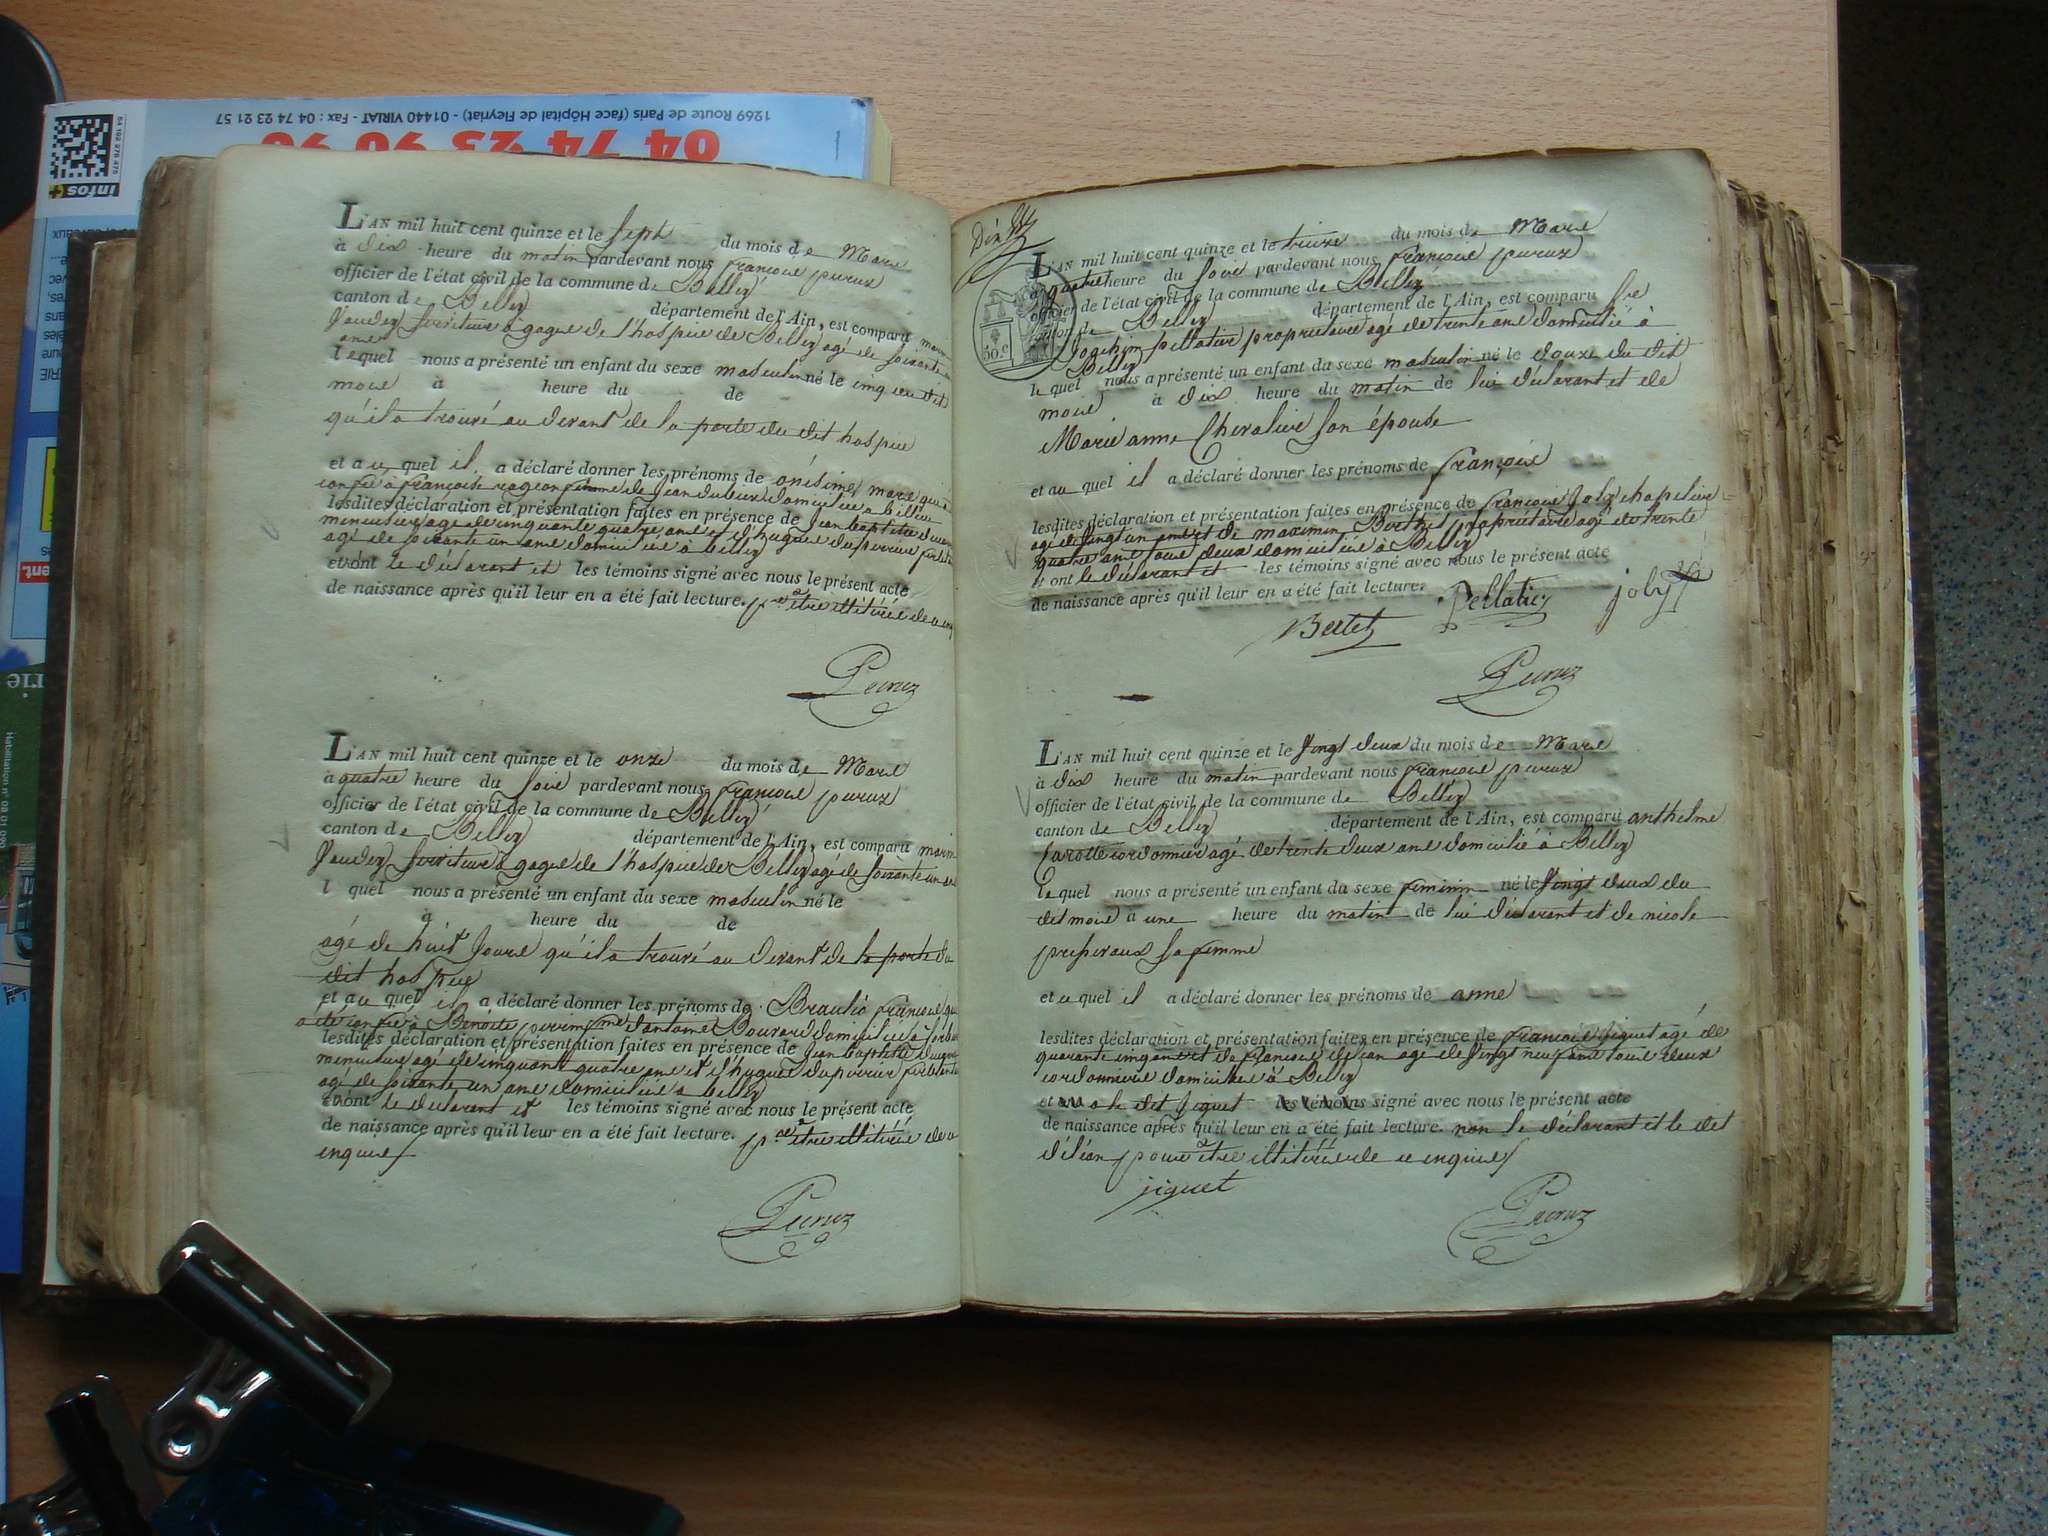 1269 Route de Paris (face Hôpital de Fleyriat) - 01440 VIRIAT - Fax : 04 74 23 21 57
04 74 23 90 90
infos+
L'AN mil huit cent quinze et le Sept du mois de Mars
à dix heure du matin pardevant nous françois peruz
officier de l'état civil de la commune de Belley
canton de Belley département de l'Ain, est comparu marin
Jaudey Serviteur à gague de l'hospice de Belley agé de soixante un
ans
lequel nous a présenté un enfant du sexe masculin né le cinq du dit
mois à heure du de
qu'il a trouvé au devant de la porte du dit hospice
et au quel il a déclaré donner les prénoms de onésime, marc qui a
confié à françoise rageon femme de Jean domicilié à
lesdites déclaration et présentation faites en présence de Jean baptiste
menuisier agé de cinquante quatre ans et d'hugues duperrier
agé de soixante un ans domiciliés à Belley
et ont le déclarant et les témoins signé avec nous le présent acte
de naissance après qu'il leur en a été fait lecture. pr être illitérés de ce enq
Pecruz
L'AN mil huit cent quinze et le onze du mois de Mars
à quatre heure du Soir pardevant nous françois peruz
officier de l'état civil de la commune de Belley
canton de Belley département de l'Ain, est comparu marin
Jaudey Serviteur à gague de l'hospice de Belley agé de soixante un ans
l quel nous a présenté un enfant du sexe masculin né le
à heure du de
agé de huit Jours qu'il a trouvé au devant de la porte du
dit hospice
et au quel il a déclaré donner les prénoms de Braulio françois qui
a été confié à Benoite perrin fme d'antoine Bouvard domiciliée à
lesdites déclaration et présentation faites en présence de Jean baptiste
menuisier agé de cinquante quatre ans et d'hugues duperrier
agé de soixante un ans domiciliés à belley
et ont le déclarant et les témoins signé avec nous le présent acte
de naissance après qu'il leur en a été fait lecture. pr être illitérés de ce
enquis
Pecruz
50.c
L'AN mil huit cent quinze et le treize du mois de Mars
à quatre heure du Soir pardevant nous françois peruz
officier de l'état civil de la commune de Belley
canton de Belley département de l'Ain, est comparu Sre
Joachim pellatier proprietaire agé de trente ans domicilié à
Belley
le quel nous a présenté un enfant du sexe masculin né le douze du dit
mois à dix heure du matin de lui déclarant et de
Marie anne Chevalier son épouse
et au quel il a déclaré donner les prénoms de françois
lesdites déclaration et présentation faites en présence de françois Joly chapelier
agé de vingt un ans et de maximin Berthet proprietaire agé de trente
quatre ans tous deux domiciliés à Belley
et ont le déclarant et les témoins signé avec nous le présent acte
de naissance après qu'il leur en a été fait lecture.
Pellatier joly
Bertet
Pecruz
L'AN mil huit cent quinze et le Vingt deux du mois de Mars
à dix heure du matin pardevant nous françois peruz
officier de l'état civil de la commune de Belley
canton de Belley département de l'Ain, est comparu anthelme
Carotte cordonnier agé de trente deux ans domicilié à Belley
le quel nous a présenté un enfant du sexe feminin né le Vingt deux du
dit mois à une heure du matin de lui déclarant et de nicole
sa femme
et a quel il a déclaré donner les prénoms de anne
lesdites déclaration et présentation faites en présence de françois jiguet agé de
quarante cinq ans et de françois délean agé de Vingt neuf ans tous deux
cordonniers domiciliés à Belley
et le dit jiguet les témoins signé avec nous le présent acte
de naissance après qu'il leur en a été fait lecture. non le déclarant et le dit
délean pour être illitérés de ce enquis
jiguet
Pecruz